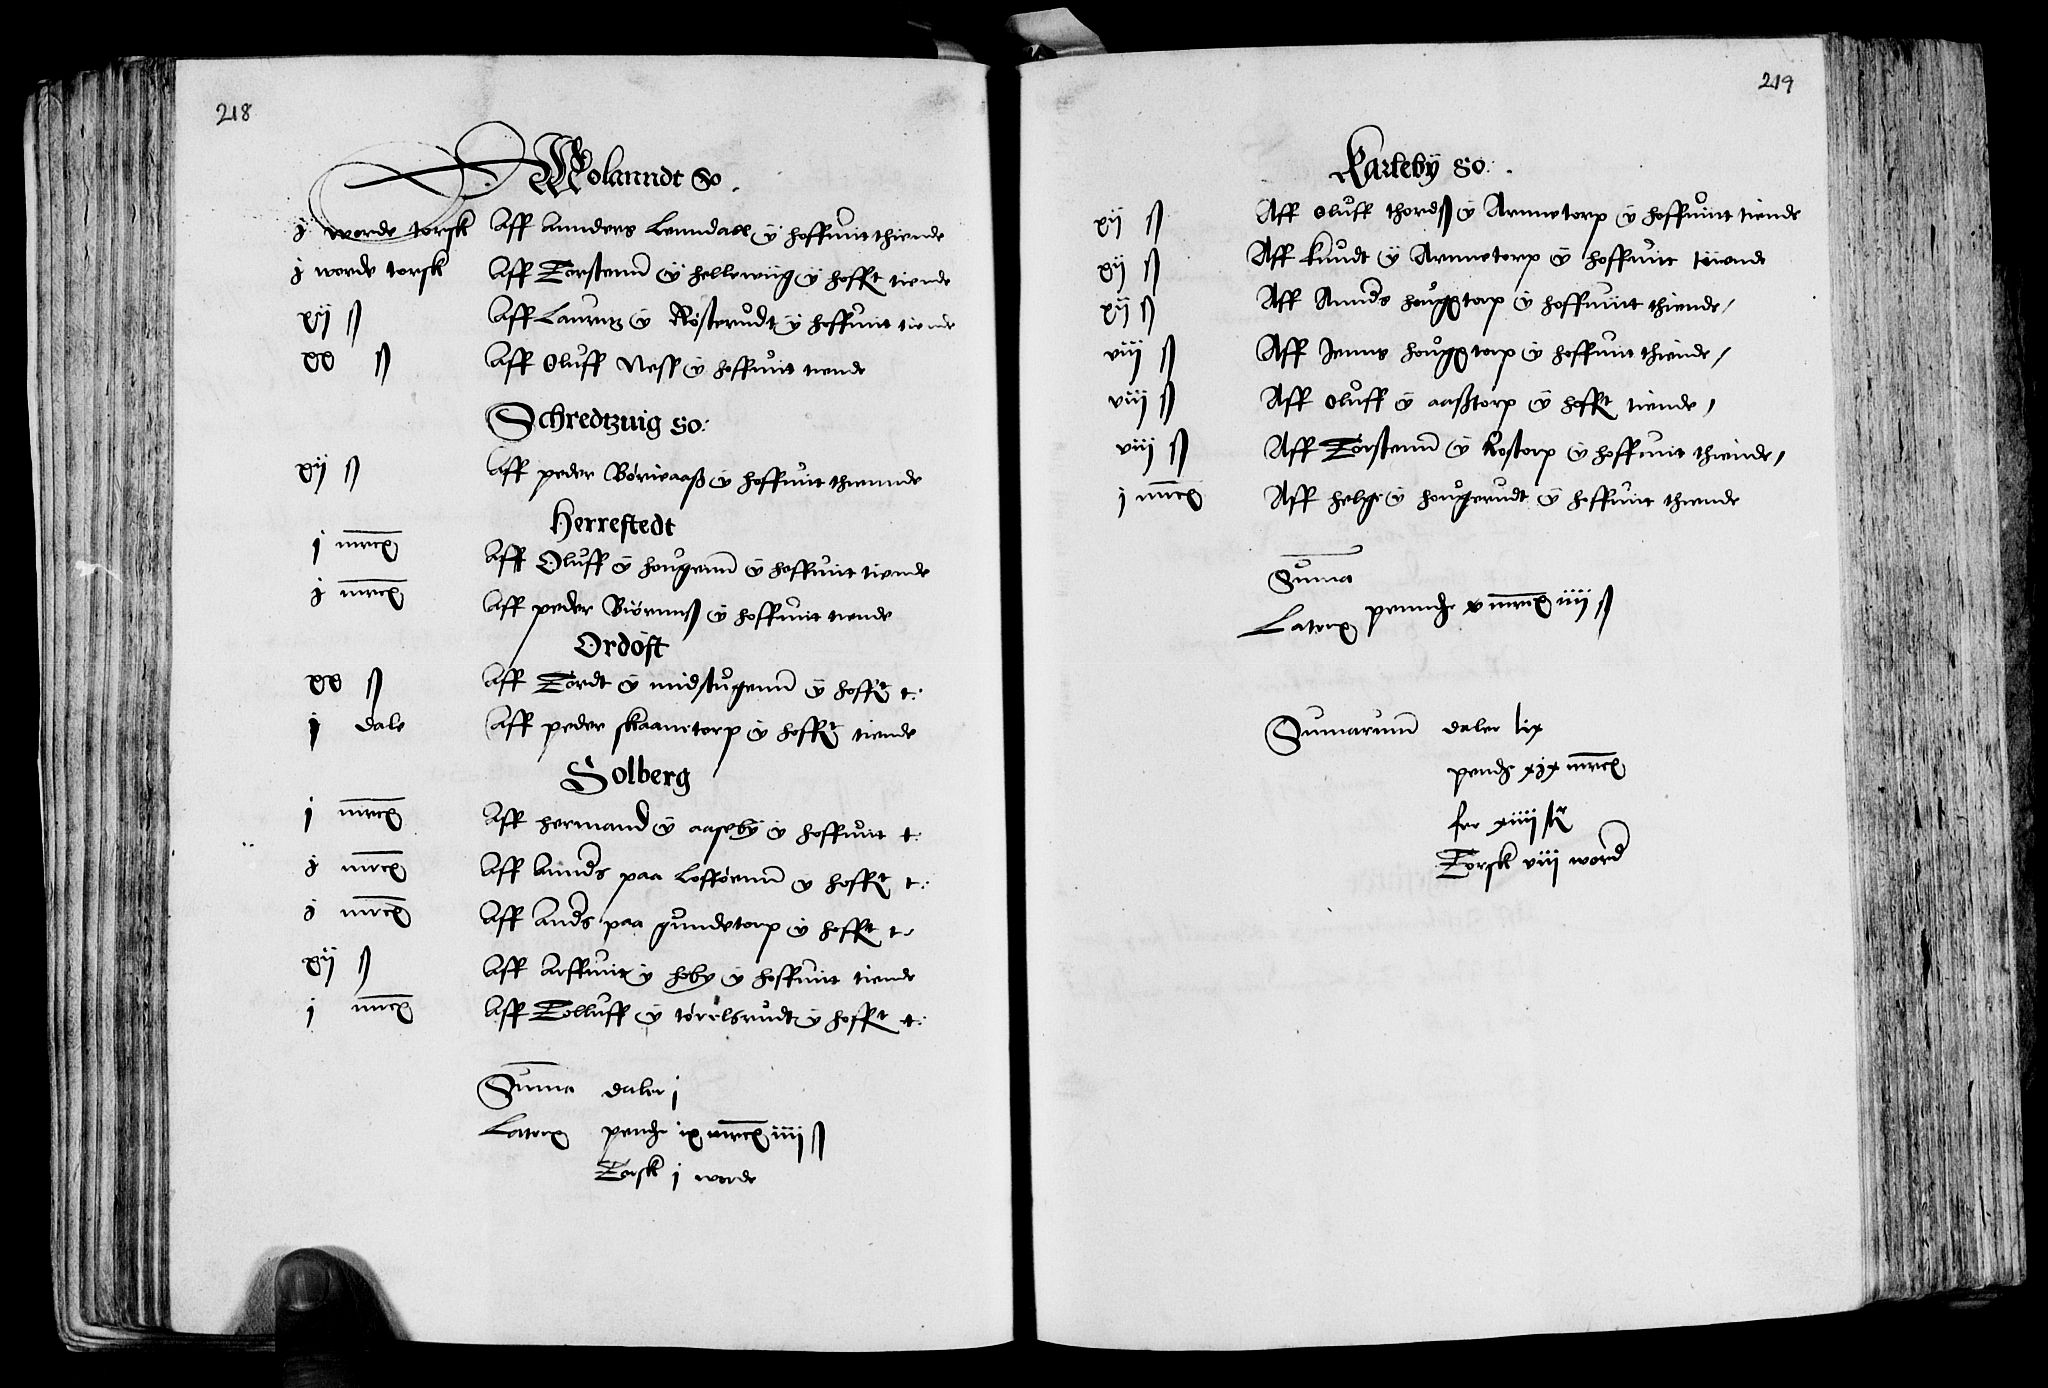 218
Wolanndt So.
j worde torsk Aff Annders Lenndall ÿ hoffuit thiende
j worde torsk Aff Torstenn ÿ hellewiig ÿ hofft tiende
xij ß Aff Lauritz ÿ Rösterudt ÿ hoffuit tiende
xx ß Aff Oluff Ness ÿ hoffuit tiende
Schredtzuig So:
xij ß Aff peder Börieaaß ÿ hoffuit thiennde
Herrestedt
j mrck Aff Oluff ÿ hougenn ÿ hoffuit tiende
j mrck Aff peder Biörnnß ÿ hoffuit tiende
Ordöst
xx ß Aff Tordt ÿ midstugenn ÿ hofft t:
j dale Aff peder skaanetorp ÿ hofft tiende
Solberg
j mrck Aff hermand ÿ aaseby ÿ hoffuit t:
j mrck Aff Annders paa Lofföenn ÿ hofft t:
j mrck Aff Anders paa gundetorp ÿ hofft t:
xij ß Aff Arffuit ÿ hoby ÿ hoffuit tiende
j mrck Aff Tolluff ÿ törelsrudt ÿ hofft t:
Summa daler j
Lateris pendge ix mrck iiij ß
Torsk j worde
219
Karleby So:.
xij ß Aff Oluff thordß ÿ Arnnetorp ÿ hoffuit tiende
xij ß Aff knudt ÿ Arnnetorp ÿ hoffuit tiende
xij ß Aff Annders houggtorp ÿ hoffuit thiende
viij ß Aff Jenns houggtorp ÿ hoffuit thiende
viij ß Aff Oluff ÿ aaßtorp ÿ hofft tiende
viij ß Aff Torstenn ÿ Rostorp ÿ hoffuit thiende
j mrck Aff helge ÿ hougerudt ÿ hoffuit thiende
Summa
Lateris penndge v mrck iiij ß
Summarum daler lix
pendge xix mrck
før xiiij stk
Torsk viij word